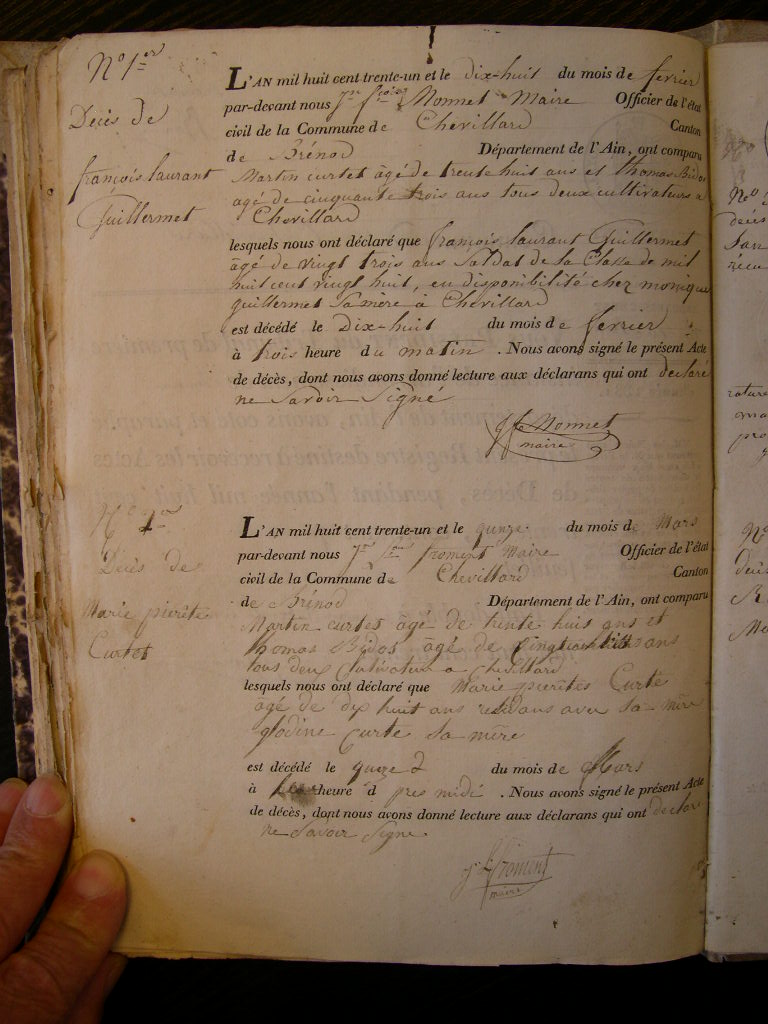 N° 1er
Décès de
françois laurant
Guillermet
L'AN mil huit cent trente-un et le dix-huit du mois de fevrier
par-devant nous Monnet Maire Officier de l'état
civil de la Commune de Chevillard Canton
de Brénod Département de l'Ain, ont comparu
Martin curtet âgé de trente huit ans et thomas Bidos
âgé de cinquante trois ans tous deux cultivateurs a
Chevillard
lesquels nous ont déclaré que françois laurant Guillermet
âgé de vingt trois ans Soldat de la Classe de mil
huit cent vingt huit, en disponibilité chez monique
guillermet Samère à Chevillard
est décédé le Dix-huit du mois de fevrier
à trois heure du matin . Nous avons signé le présent Acte
de décès, dont nous avons donné lecture aux déclarans qui ont declaré
ne Savoir Signé
Monnet
maire
Décès de
Marie pierete
Curtet
L'AN mil huit cent trente-un et le qunze du mois de Mars
par-devant nous froment Maire Officier de l'état
civil de la Commune de Chevillard Canton
de Brénod Département de l'Ain, ont comparu
Martin curtet âgé de trente huis ans et
thomas Bidos âgé de ans
tous deux Cultivateur a Chevillard
lesquels nous ont déclaré que Marie pieretes Curte
âgé de dix huit ans residans avec sa mère
glodine Curte sa mère
est décédé le du mois de Mars
à heure d pres midé . Nous avons signé le présent Acte
de décès, dont nous avons donné lecture aux déclarans qui ont declare
ne Savoir Signe.
froment
maire